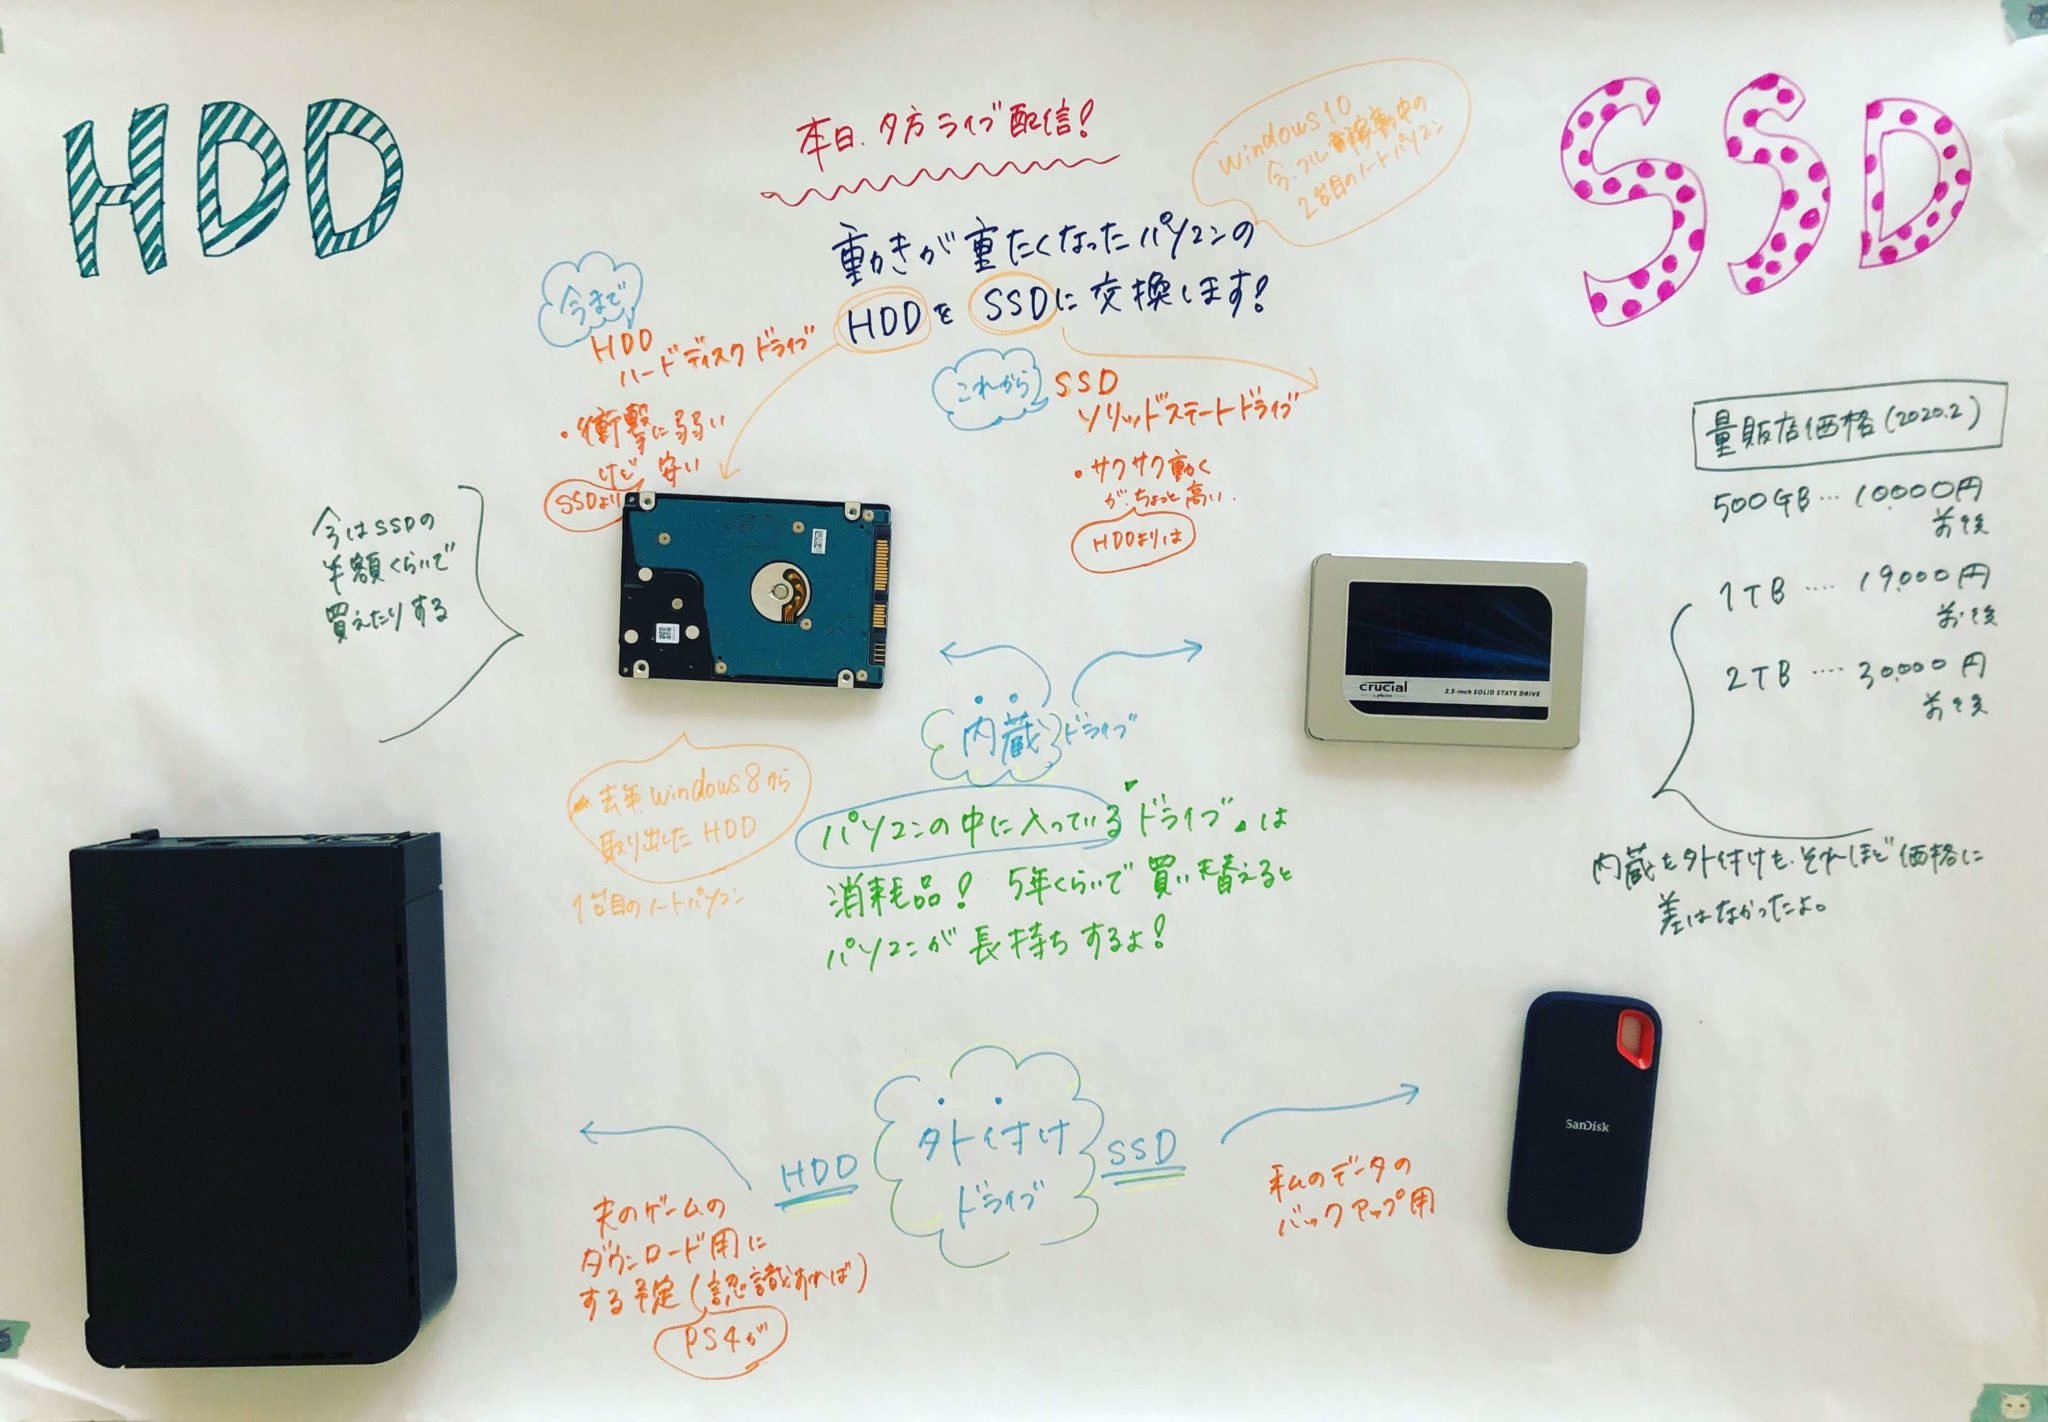 HDD
SSD
本日、夕方ライブ配信!
Windows10
今、フル稼動中の
2台目のノートパソコン
動きが重たくなったパソコンの
HDDをSSDに交換します!
今まで
HDD
ハードディスクドライブ
・衝撃に弱い
けど安い
SSDより
これから
SSD
ソリッドステートドライブ
・サクサク動く
が、ちょっと高い.
HDDよりは
今はSSDの
半額くらいで
買えたりする
量販店価格(2020.2)
500GB … 10000円
前後
1TB …. 19,000円
前後
2TB …. 30,000円
前後
内蔵も外付けも、それほど価格に
差はなかったよ。
crucial
2.5-inch SOLID STATE DRIVE
内蔵ドライブ
去年windows8から
取り出したHDD
1台目のノートパソコン
パソコンの中に入っている「ドライブ」は
消耗品! 5年くらいで買い替えると
パソコンが長持ちするよ!
HDD
外付け
ドライブ
SSD
夫のゲームの
ダウンロード用に
する予定(認識すれば)
PS4が
私のデータの
バックアップ用
SanDisk